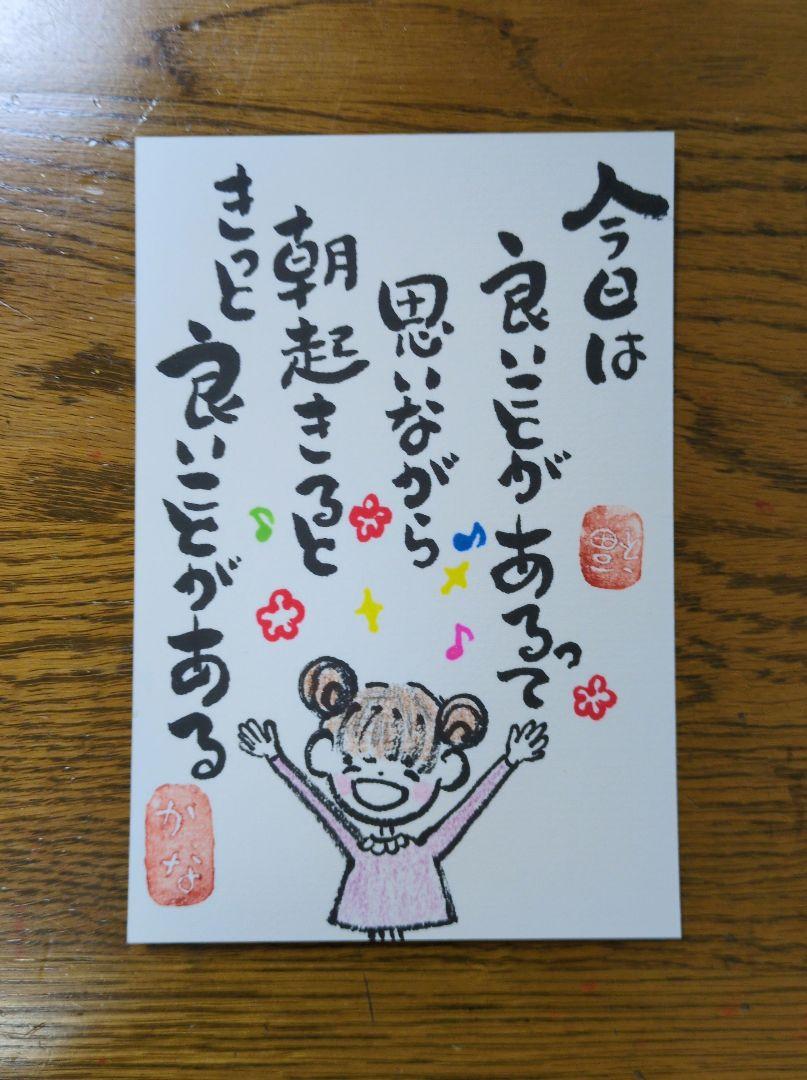 今日は
良いことがあるって
思いながら
朝起きると
きっと
良いことがある
福
かな